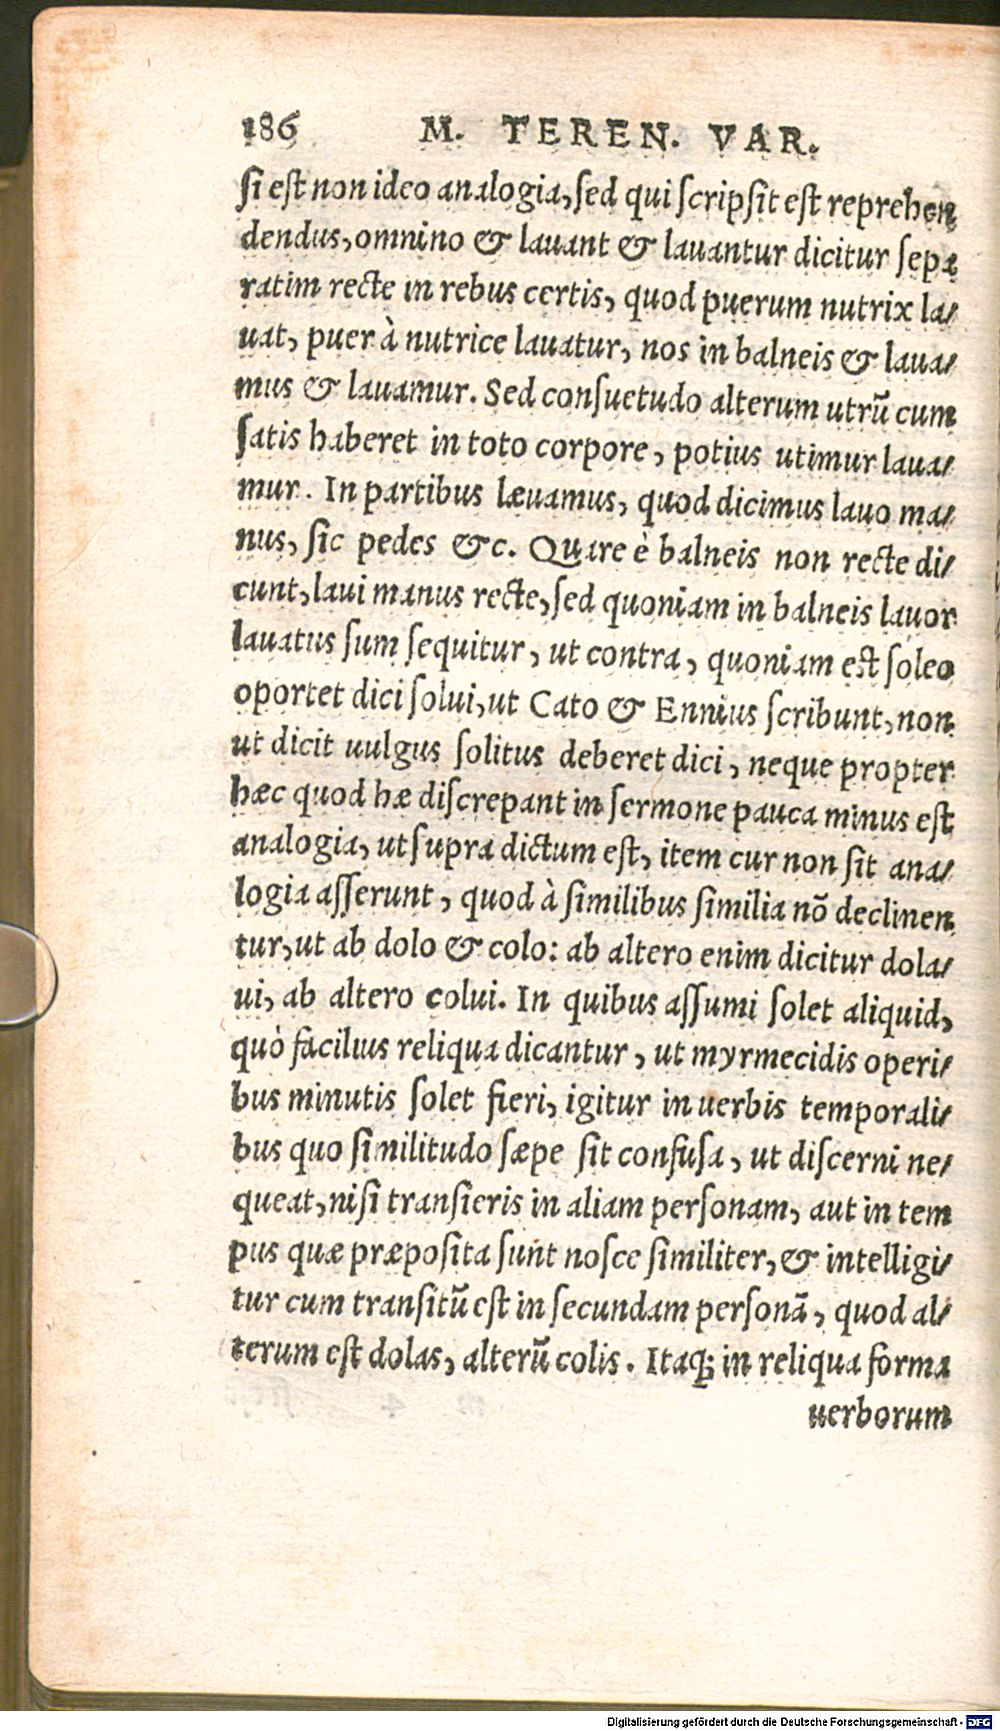 186 M. TEREN. VAR.
si est non ideo analogia, sed qui scripsit est reprehen
dendus, omnino & lauant & lauantur dicitur sepa
ratim recte in rebus certis, quod puerum nutrix la⸗
uat, puer à nutrice lauatur, nos in balneis & laua⸗
mus & lauamur. Sed consuetudo alterum utrũ cum
satis haberet in toto corpore, potius utimur laua⸗
mur. In partibus læuamus, quod dicimus lauo ma⸗
nus, sic pedes &c. Quare è balneis non recte di⸗
cunt, laui manus recte, sed quoniam in balneis lauor
lauatus sum sequitur, ut contra, quoniam est soleo
oportet dici solui, ut Cato & Ennius scribunt, non
ut dicit uulgus solitus deberet dici, neque propter
hæc quod hæ discrepant in sermone pauca minus est
analogia, ut supra dictum est, item cur non sit ana⸗
logia asserunt, quod à similibus similia nõ declinen
tur, ut ab dolo & colo: ab altero enim dicitur dola⸗
ui, ab altero colui. In quibus assumi solet aliquid,
quò facilius reliqua dicantur, ut myrmecidis operi⸗
bus minutis solet fieri, igitur in uerbis temporali⸗
bus quo similitudo sæpe sit confusa, ut discerni ne⸗
queat, nisi transieris in aliam personam, aut in tem
pus quæ præposita sunt nosce similiter, & intelligi⸗
tur cum transitũ est in secundam personã, quod al⸗
terum est dolas, alterũ colis. Itaq; in reliqua forma
uerborum
Digitalisierung gefördert durch die Deutsche Forschungsgemeinschaft - DFG